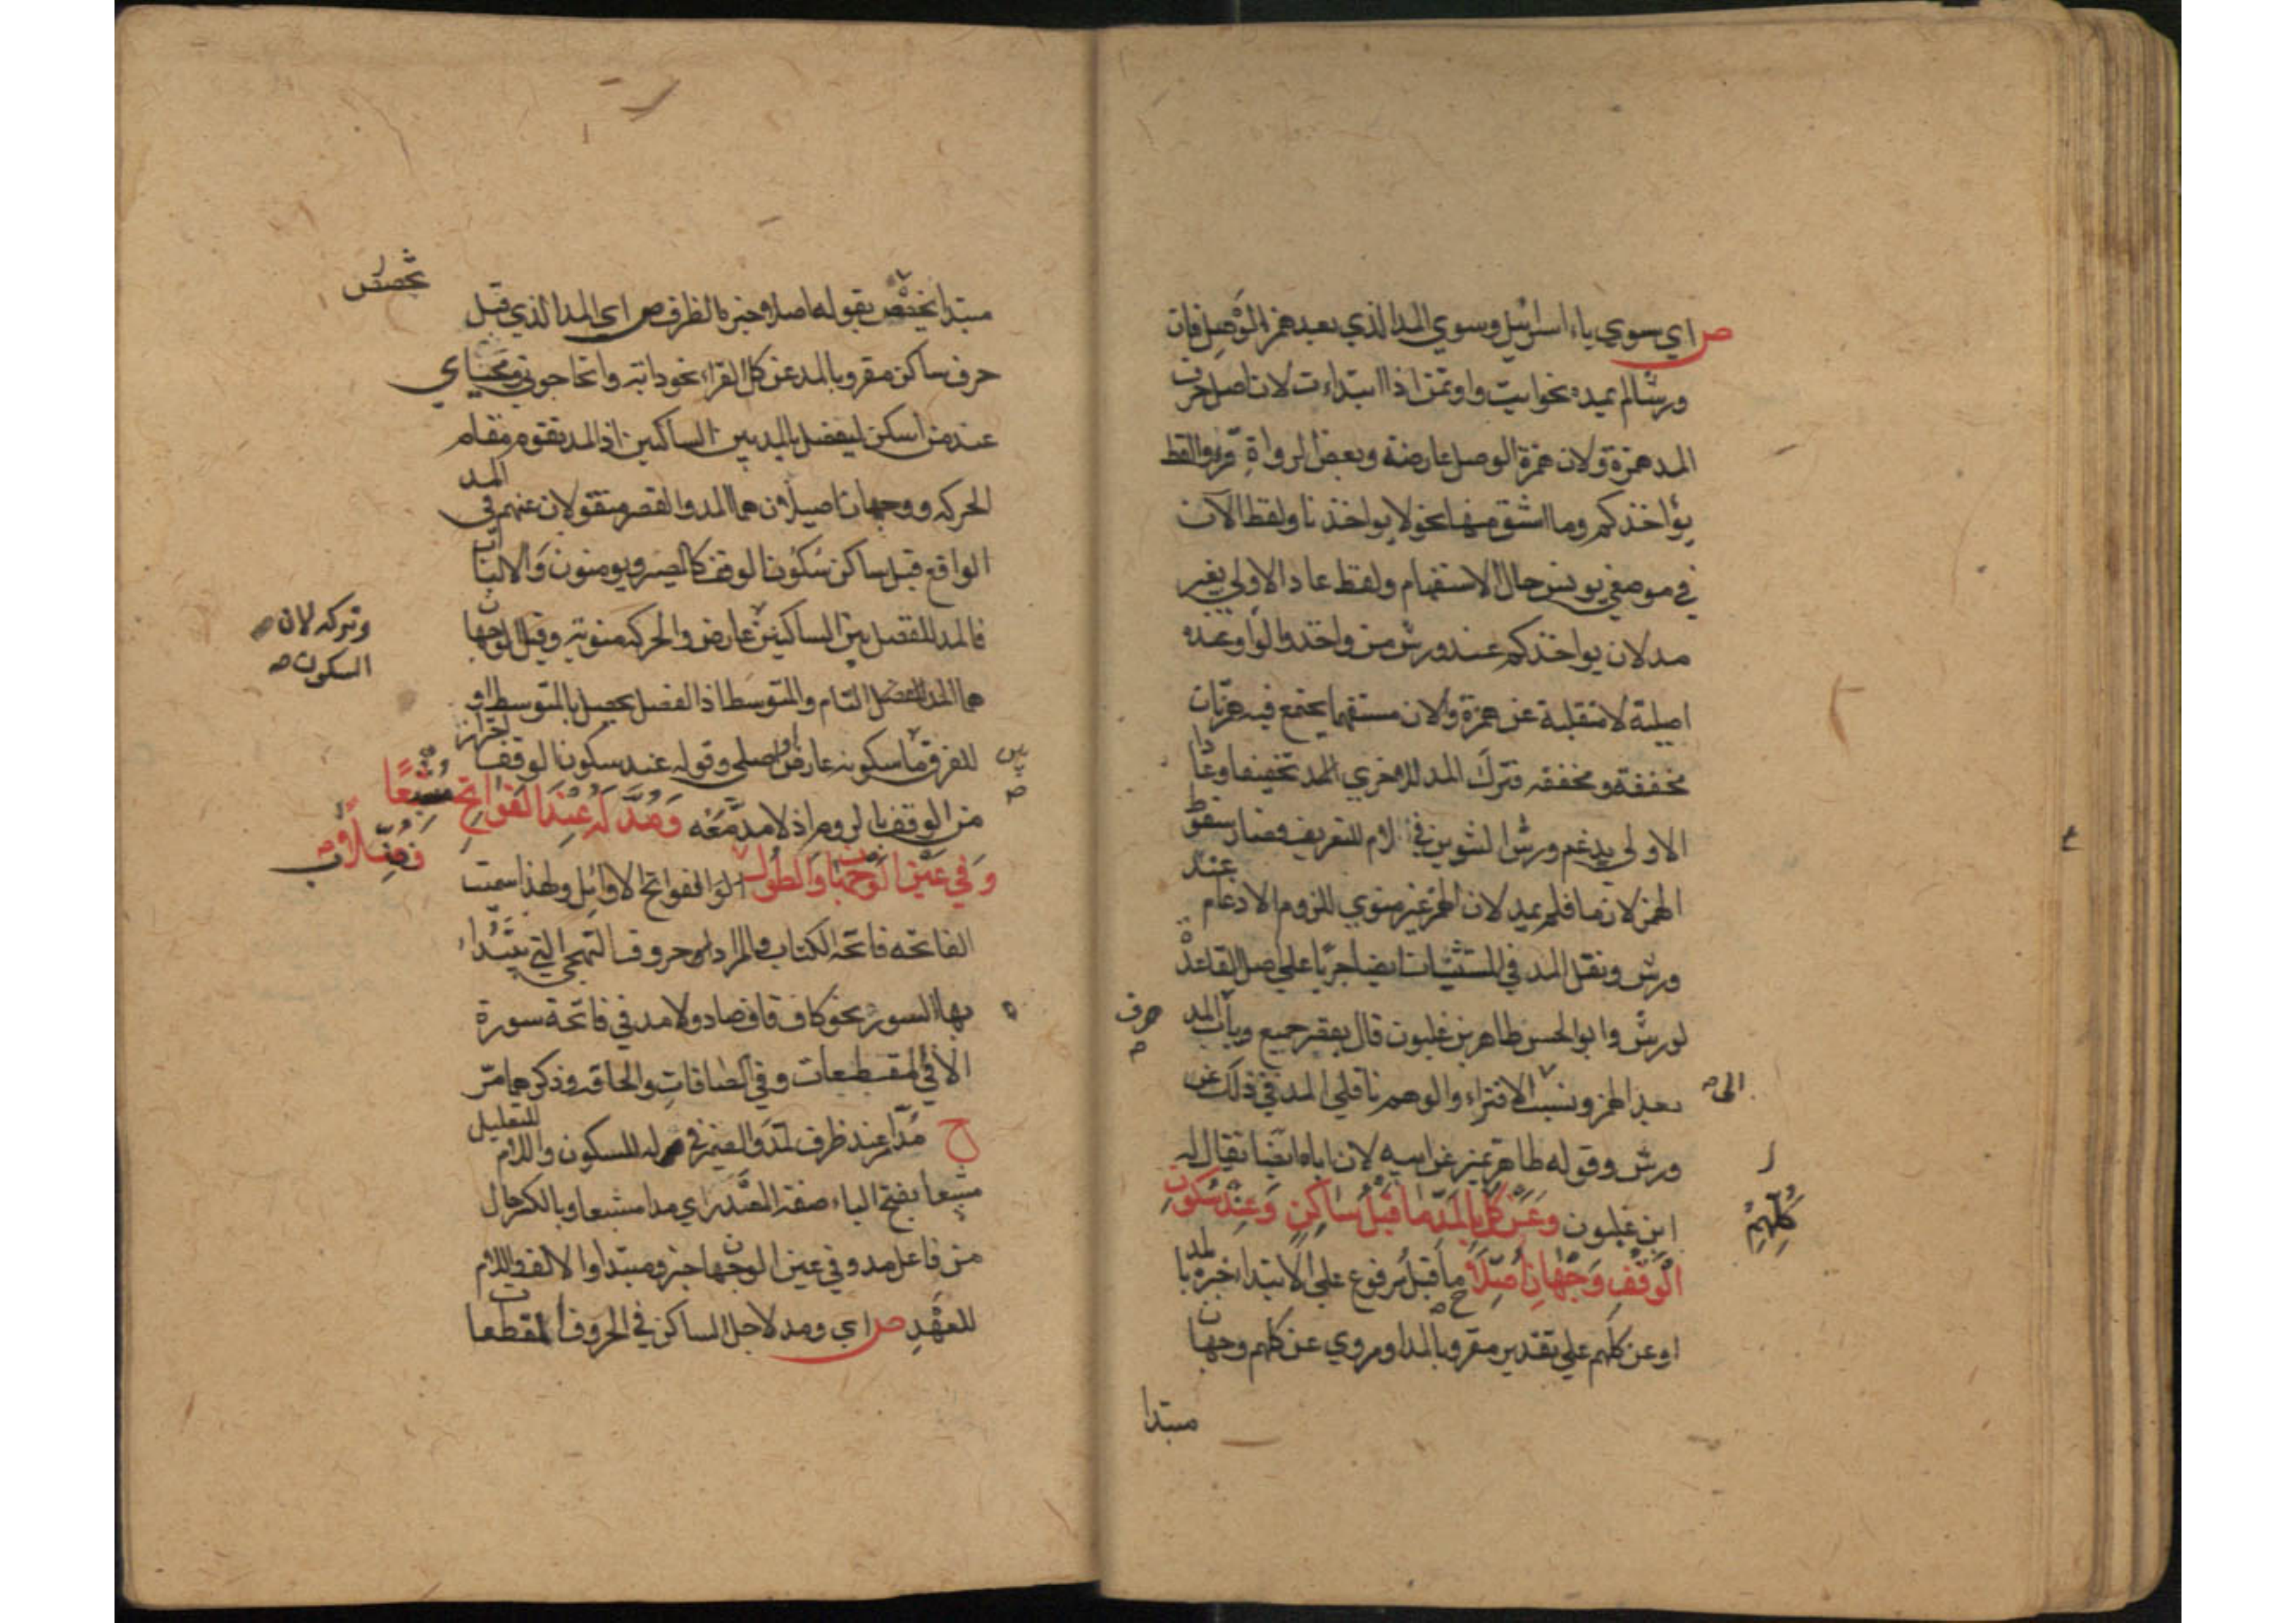 ص اي سوي ياء اسرائيل وسوي المد الذي بعد همز الوصل فان
ورشا لم يمده نحو ايت واوتمن اذا ابتداءت لان اصل حرف
المد همزة ولان همزة الوصل عارضة وبعض الرواة قرؤا لفظ
يؤاخذكم وما اشتق منها نحو لا يواخذنا ولفظ الآن
في موضعي يونس حال الاستفهام ولفظ عاد الاولي بغير
مد لان يواخذكم عند ورش من واخذ والواو عنده
اصلية لا منقلبة عن همزة ولان مستفهما يجتمع فيه همزتان
مخففة ومخففه فترك المد للاخري المد تخفيفا وعادا
الاولي يدغم ورش التنوين في لام للتعريف فصار سقوط
الهمز لازما فلم يمد لان الهمز غير منوي للزوم الادغام عند
ورش ونقل المد في المستثنيات ايضا جريا علي اصل القاعدة
لورش وابو الحسن طاهر بن غلبون قال بقصر جميع وباب المد
حرف
بعد الهمز ونسب الافتراء والوهم ناقلي المد في ذلك عن
الى
ورش وقوله طاهر تميز عن ابيه لان اباه ايضا يقال له
ابن غلبون وعن كل بالمد ما قبل ساكن وعند سكون
كلهم
الوقف وجهان اصلا ما قبل مرفوع علي الابتداء خبره بالمد
او عن كلهم علي تقدير مقرو بالمد او مروي عن كلهم وجهان
مبتدا
مبتدا تخصص بقوله اصلا وخبره الظرف ص اي المد الذي قبل
تخصص
حرف ساكن مقرو بالمد عن كل القراء نحو دابة واتحاجوني ومحياي
عند من اسكن ليفصل بالمد بين الساكنين اذ المد يقوم مقام
الحركه ووجهان اصيلان هما المد والقصر منقولان عنهم في المد
الواقع قبل ساكن سكون الوقف كالمصير ويومنون والالباب
فالمد للفصل بين الساكنين عارض والحركه منويه وقيل الوجهان
وتركه لان
السكون
هما المد التام والمتوسط اذ الفصل يحصل بالمتوسط او
للفرق ما سكونه عارض واصلي وقوله عند سكون الوقف احتراز
بين
من الوقف بالروم اذ لا مد معه ومد له عند الفواتح مشبعا
وفي عين الوجهان والطول فضلا
الفواتح الاوايل ولهذا سميت
الفاتحه فاتحة الكتاب والمراد حروف التهجي التي يبتداء
بها السور نحو كاف قاف صاد ولا مد في فاتحة سورة
الا في المقطعات وفي الصافات والحاقه وذكرهما مر
ح مد امر عند ظرف لمد والضمير في له للسكون واللام للتعليل
مشبعا بفتح الباء صفة المصدر اي مدا مشبعا وبالكسر حال
من فاعل مد وفي عين الوجهان خبر ومبتدا والالف واللام
للعهد ص اي ومد لاجل الساكن في الحروف المقطعات